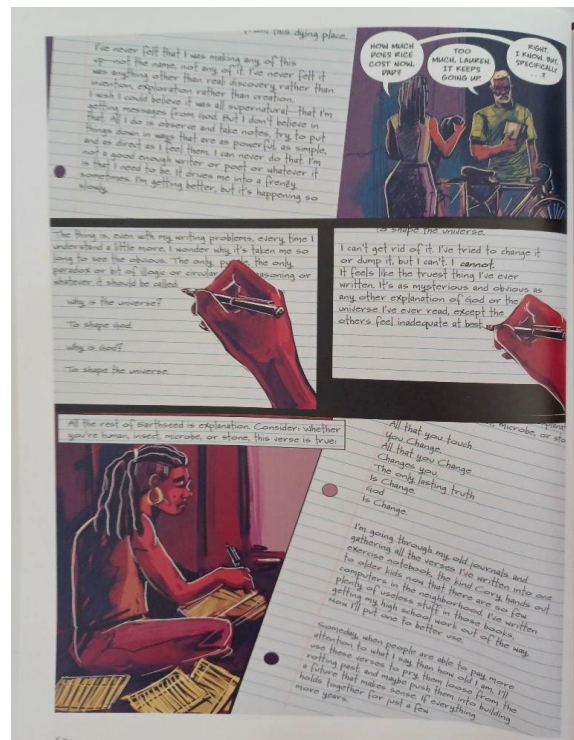 this dying place.
I've never felt that I was making any of this
up—not the name, not any of it. I've never felt it
was anything other than real discovery rather than
invention, exploration rather than creation.
I wish I could believe it was all supernatural—that I'm
getting messages from God. But I don't believe in
that. All I do is observe and take notes, try to put
things down in ways that are as powerful, as simple,
and as direct as I feel them. I can never do that. I'm
not a good enough writer or poet or whatever it
is that I need to be. It drives me into a frenzy
sometimes. I'm getting better, but it's happening so
slowly.
HOW MUCH
DOES RICE
COST NOW,
DAD?
TOO
MUCH, LAUREN.
IT KEEPS
GOING UP.
RIGHT,
I KNOW, BUT,
SPECIFICALLY
...?
The thing is, even with my writing problems, every time I
understand a little more, I wonder why it's taken me so
long to see the obvious. The only the only
paradox or bit of illogic or circular reasoning or
whatever it should be called
Why is the universe?
To shape God.
Why is God?
To shape the universe.
To shape the universe.
I can't get rid of it. I've tried to change it
or dump it, but I can't. I cannot.
It feels like the truest thing I've ever
written. It's as mysterious and obvious as
any other explanation of God or the
universe I've ever read, except the
others feel inadequate at best
All the rest of Earthseed is explanation. Consider: whether
you're human, insect, microbe, or stone, this verse is true:
microbe, or sto
All that you touch
You Change.
All that you Change
Changes you.
The only lasting truth
Is Change.
God
Is Change.
I'm going through my old journals and
gathering all the verses I've written into one
exercise notebook, the kind Cory hands out
to older kids now that there are so few
computers in the neighborhood. I've written
plenty of useless stuff in those books,
getting my high school work out of the way.
Now I'll put one to better use.
Someday, when people are able to pay more
attention to what I say than how old I am, I'll
use these verses to pry them loose from the
rotting past and maybe push them into building
a future that makes sense. If everything
holds together for just a few
more years.